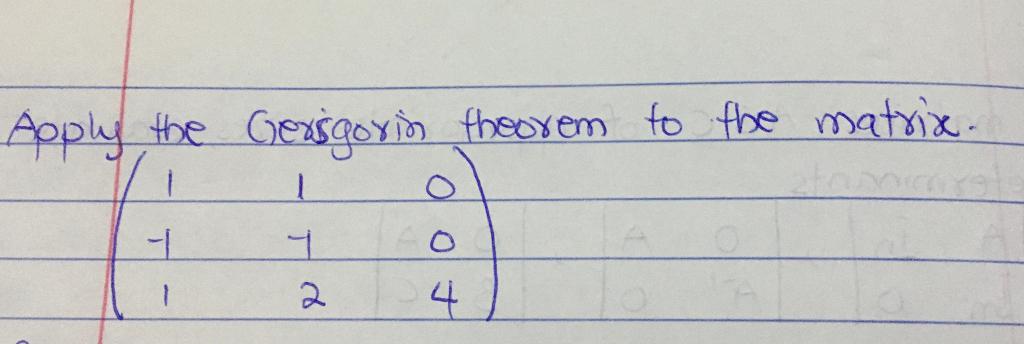 Apply the Gersgorin theorem to the matrix.
1 1 0
-1 -1 0
1 2 4